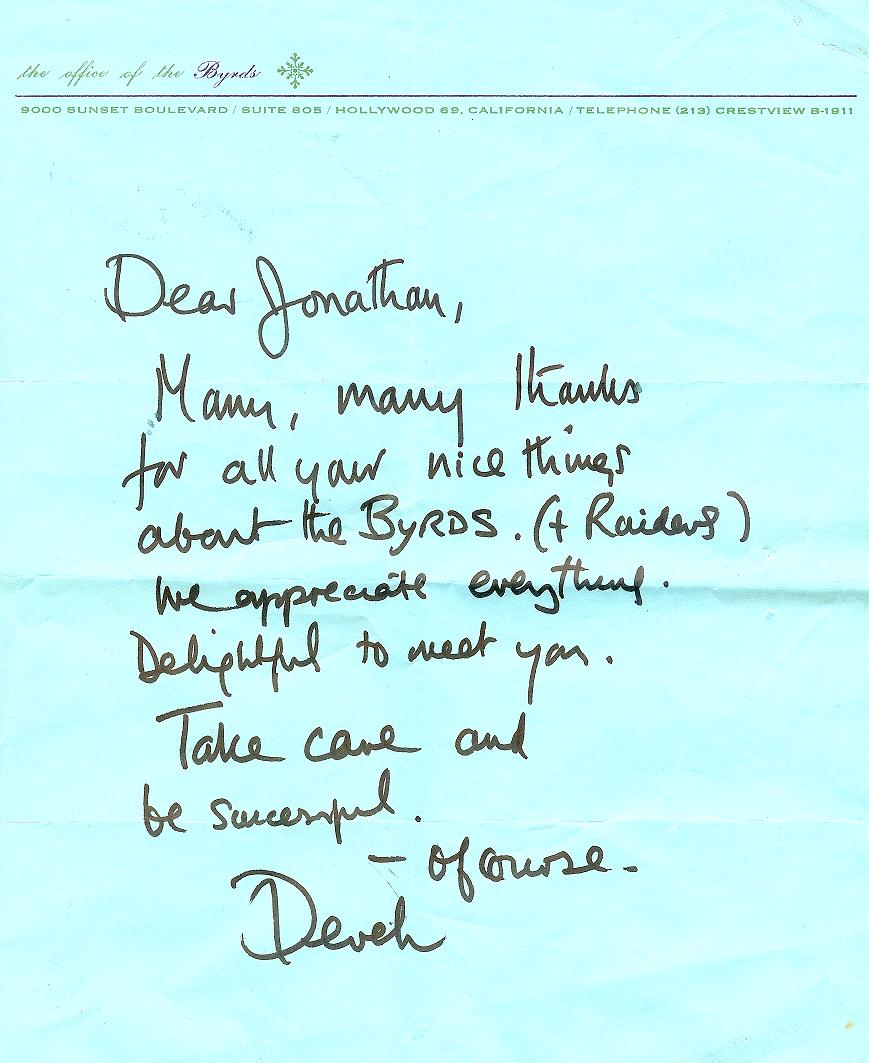 the office of the Byrds
9000 SUNSET BOULEVARD / SUITE 805 / HOLLYWOOD 69, CALIFORNIA / TELEPHONE (213) CRESTVIEW 8-1911
Dear Jonathan,
Many, many thanks
for all your nice things
about the BYRDS. (+ Raiders)
We appreciate everything.
Delightful to meet you.
Take care and
be successful.
– of course.
Derek